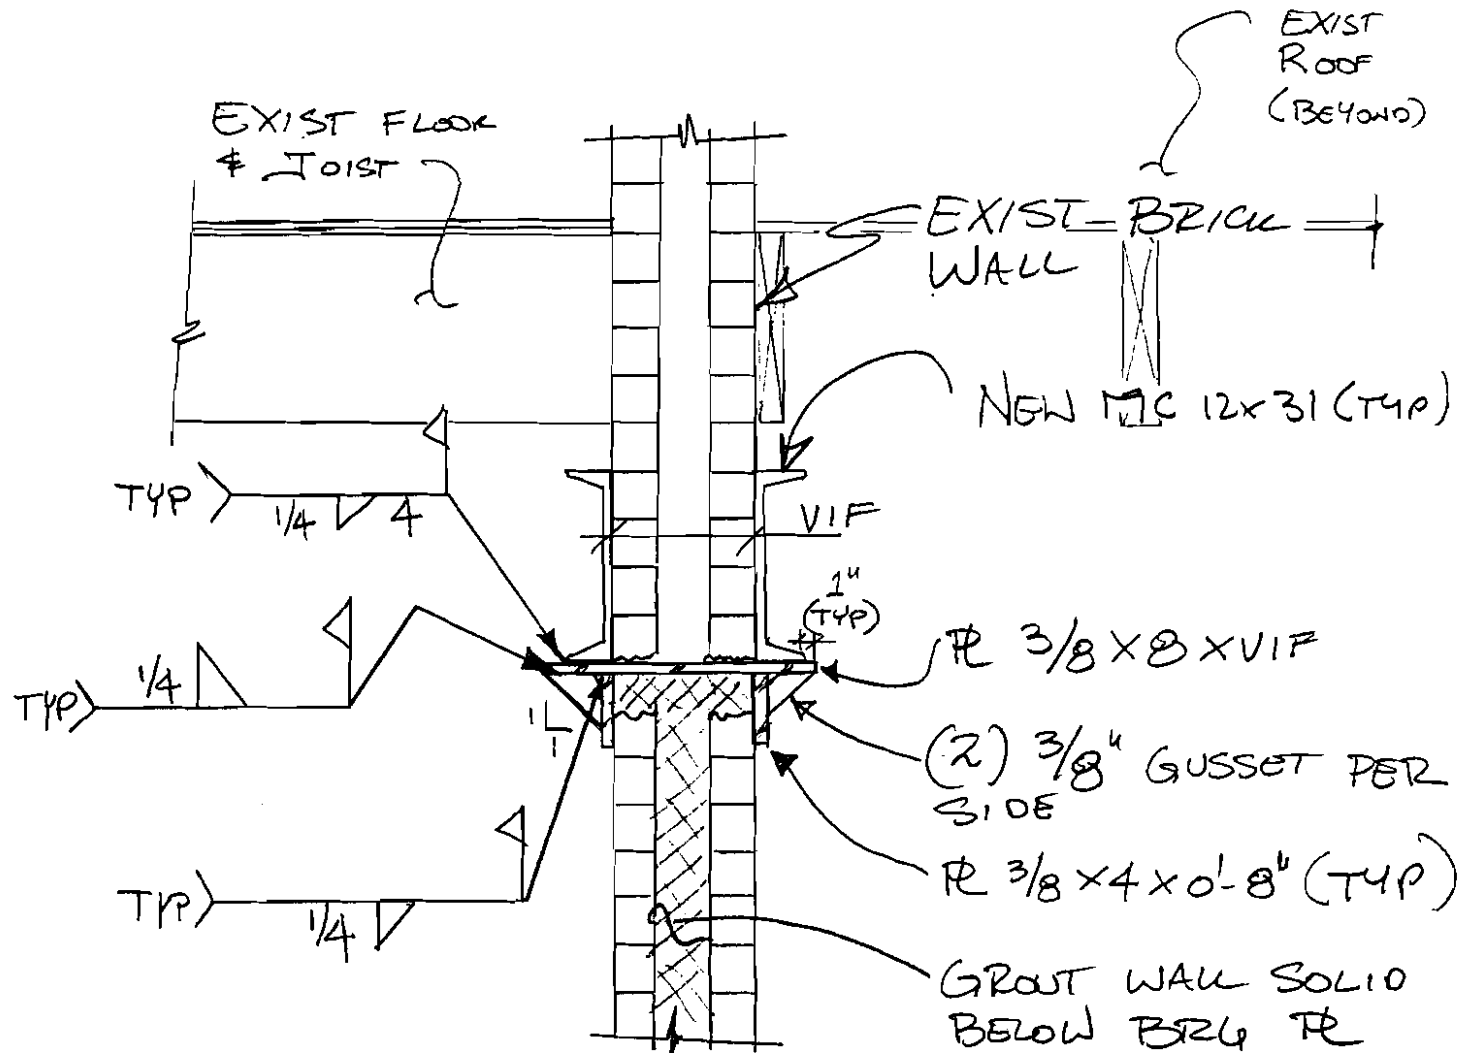 EXIST
ROOF
(BEYOND)
EXIST FLOOR
& JOIST
EXIST BRICK
WALL
NEW MC 12x31 (TYP)
TYP
1/4 4
VIF
1"
(TYP)
PL 3/8 x 8 x VIF
TYP
1/4
1
1
(2) 3/8" GUSSET PER
SIDE
PL 3/8 x 4 x 0'-8" (TYP)
TYP
1/4
GROUT WALL SOLID
BELOW BRG PL